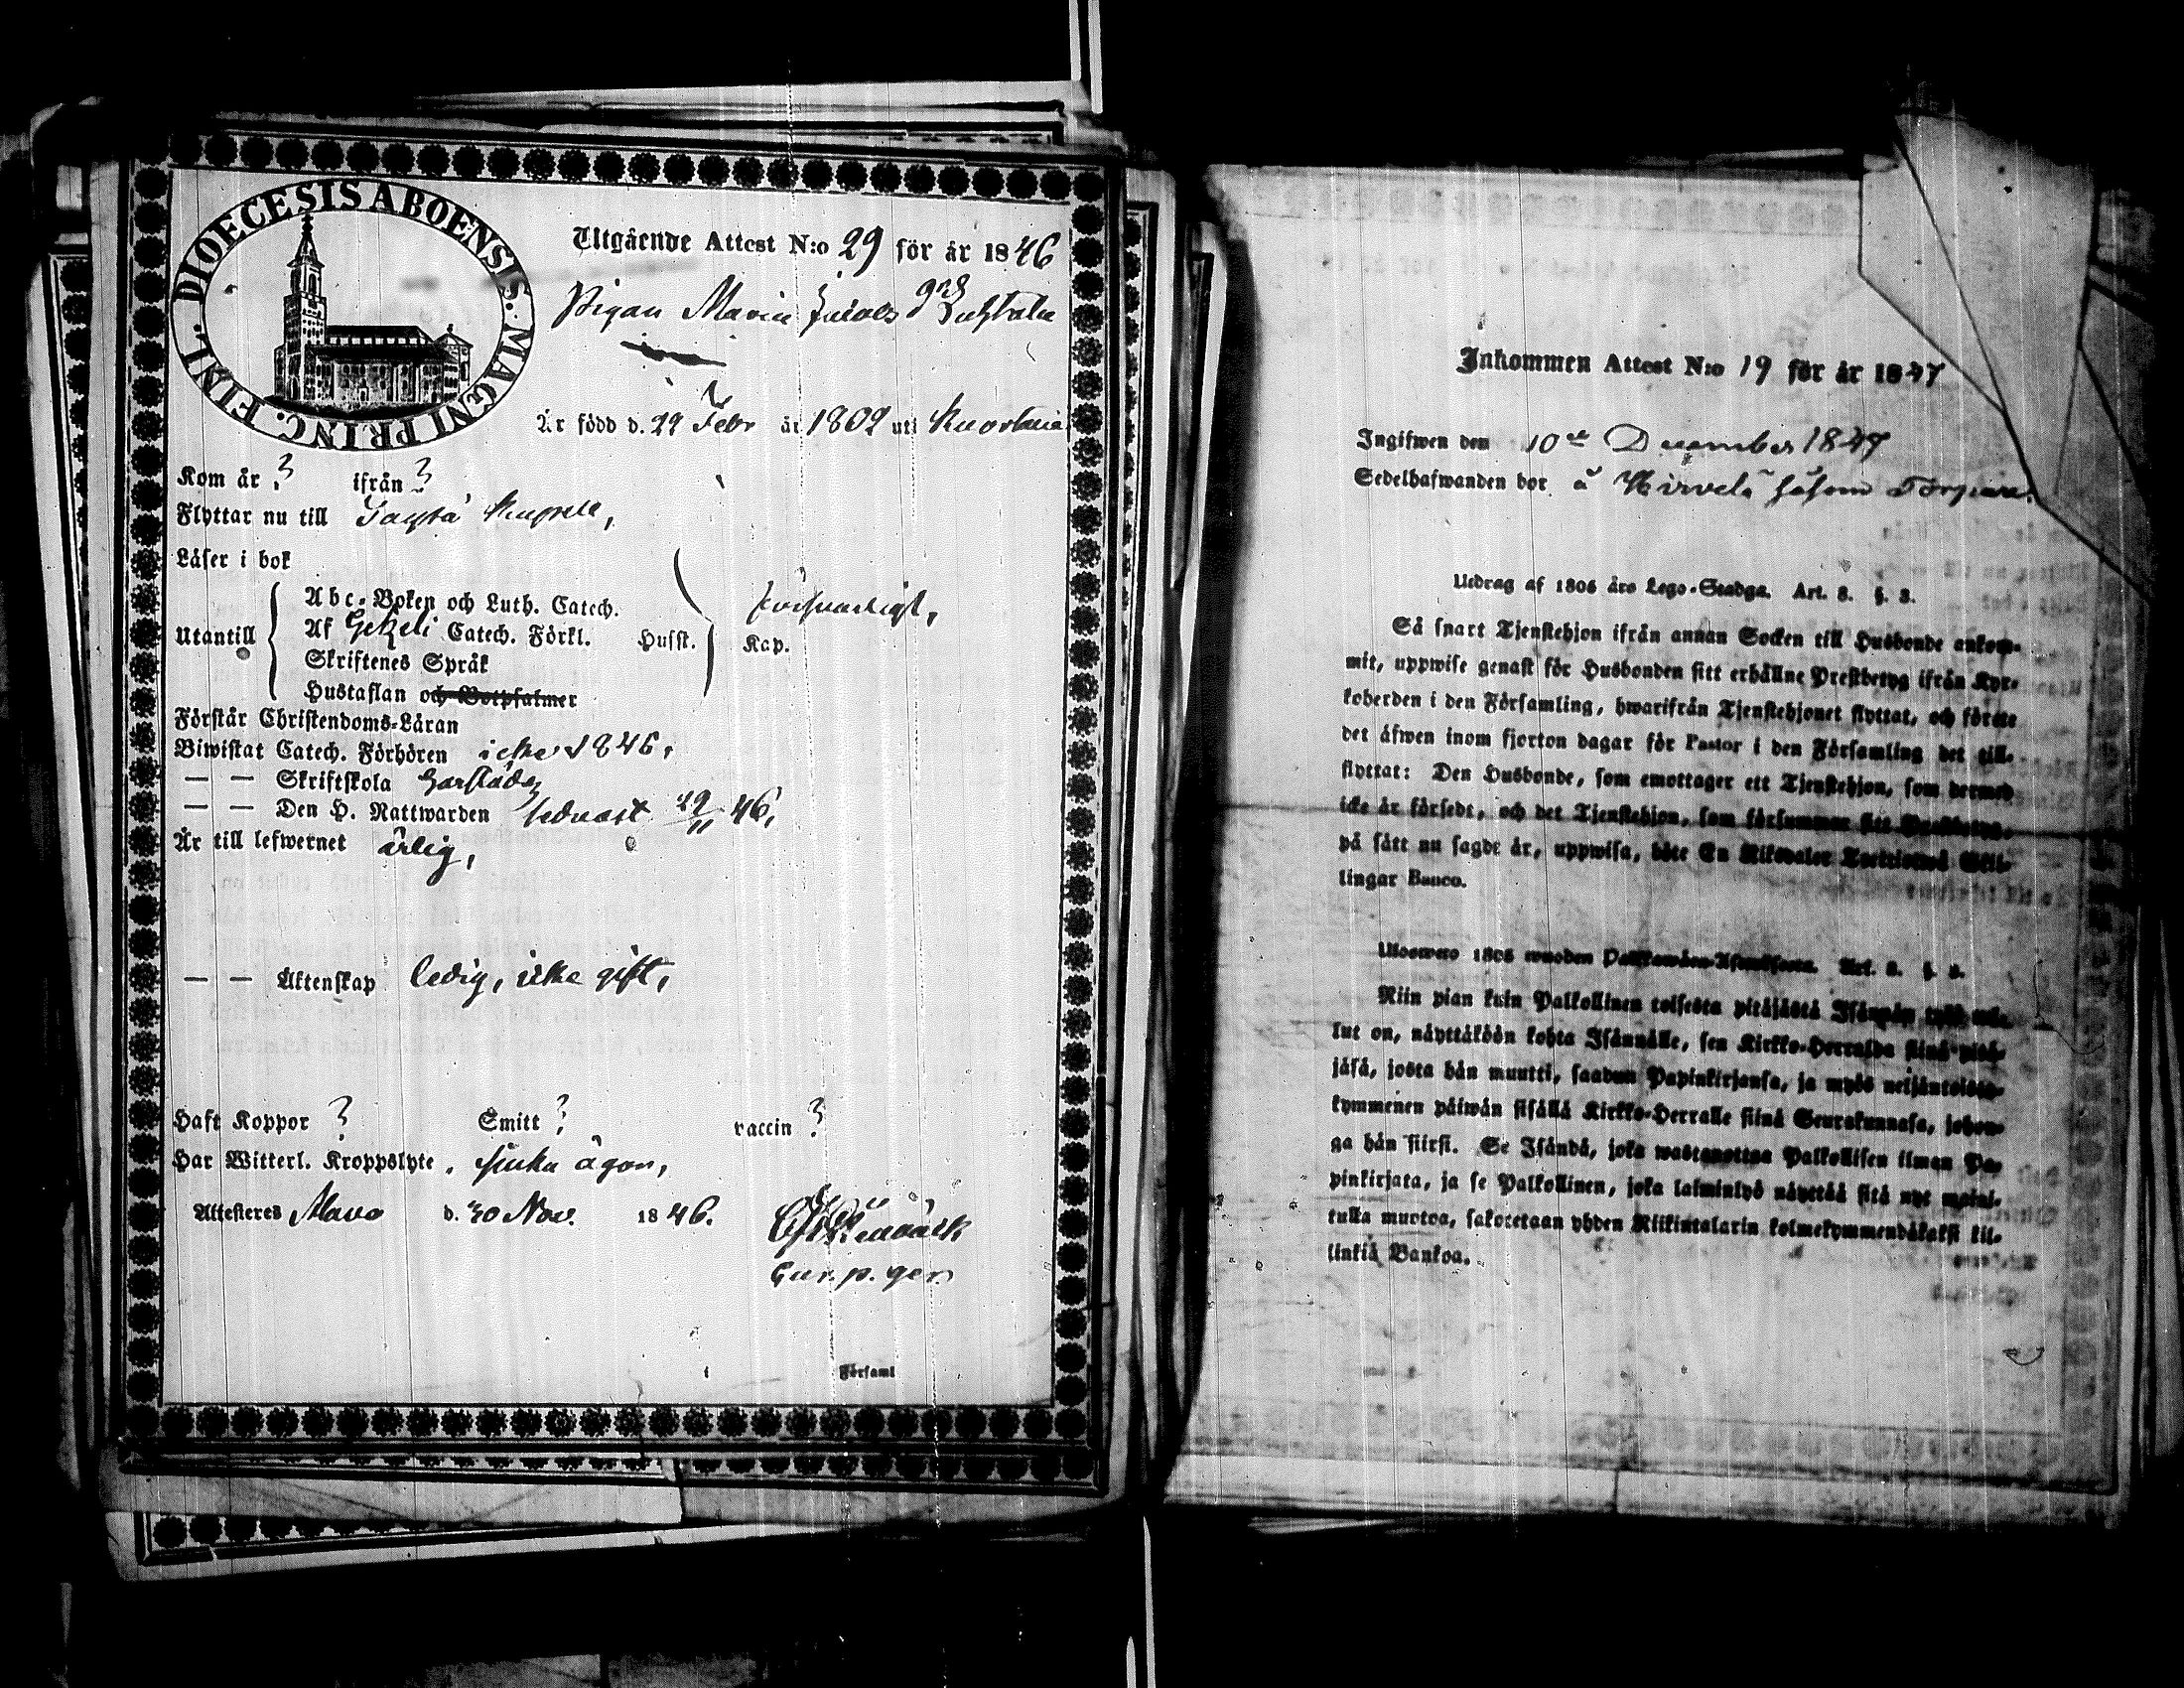 DIOECESIS ABOENSIS. MAGNI PRINC. FINL.
Utgående Attest N:o 29 för år 1846
Pigan Maria
Är född d. 29 Febr år 1802 uti Kuortane
Kom år ? ifrån ?
Flyttar nu till
Läser i bok
Abc-Boken och Luth. Catech. försvarligt,
Utantill Af Gezeli Catech. Förkl. Husst. Kap.
Skriftenes Språk
Hustaflan och Botpsalmer
Förstår Christendoms-Läran
Biwistat Catech. Förhören icke 1846,
— — Skriftskola
— — Den H. Nattwarden sednast 46,
Är till lefwernet ärlig,
— — Äktenskap ledig, icke gift,
Haft Koppor ? Smitt ? vaccin ?
Har Witterl. Kroppslyte, sjuka ögon,
Attesteres Alavo d. 30 Nov. 1846.
p. ger.
i Församl
Inkommen Attest N:o 19 för år 1847
Ingifwen den 10de December 1847
Sedelhafwanden bor å Hirvelä såsom
Utdrag af 1805 års Lego-Stadga. Art. 8. §. 3.
Så snart Tjenstehjon ifrån annan Socken till Husbonde ankom-
mit, uppwise genast för Husbonden sitt erhållne Prestbetyg ifrån Kyr-
koherden i den Församling, hwarifrån Tjenstehjonet flyttat, och förete
det äfwen inom fjorton dagar för Pastor i den Församling det till-
flyttat: Den Husbonde, som emottager ett Tjenstehjon, som dermed
icke är försedt, och det Tjenstehjon, som försummar sitt Prestbetyg,
på sätt nu sagdt är, uppwisa, böte En Riksdaler Trettiotwå Skil-
lingar Banco.
Ulosweto 1805 wuoden Palkkawäen-Asetuksesta. Art. 8. §. 3.
Niin pian kuin Palkollinen toisesta pitäjästä Isännän tykö tul-
lut on, näyttäköön kohta Isännälle, sen Kirkko-Herralda siinä pitä-
jäsä, josta hän muutti, saadun Papinkirjansa, ja myös neljäntoista-
kymmenen päiwän sisällä Kirkko-Herralle siinä Seurakunnasa, johon-
ga hän siirsi. Se Isändä, joka wastanottaa Palkollisen ilman Pa-
pinkirjata, ja se Palkollinen, joka laiminlyö näyttää sitä nyt maini-
tulla muotoa, sakotetaan yhden Riikintalarin kolmekymmendäkaksi kil-
linkiä Bankoa.